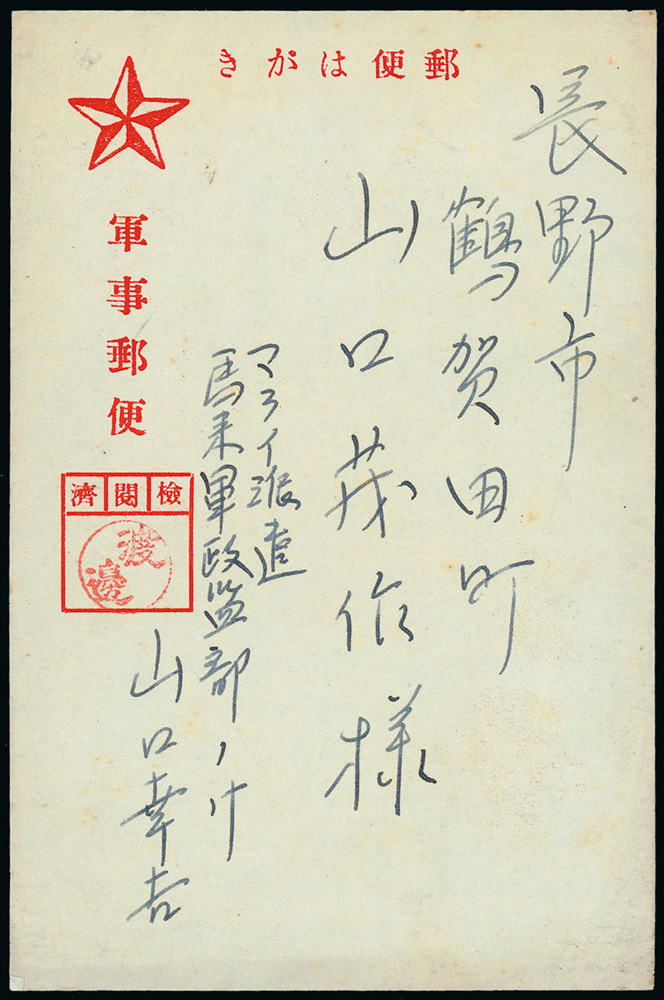 郵便はがき
長野市
鶴賀田町
山口茂作様
マライ派遣
馬来軍政監部
山口幸吉
軍事郵便
檢閲濟
渡邊